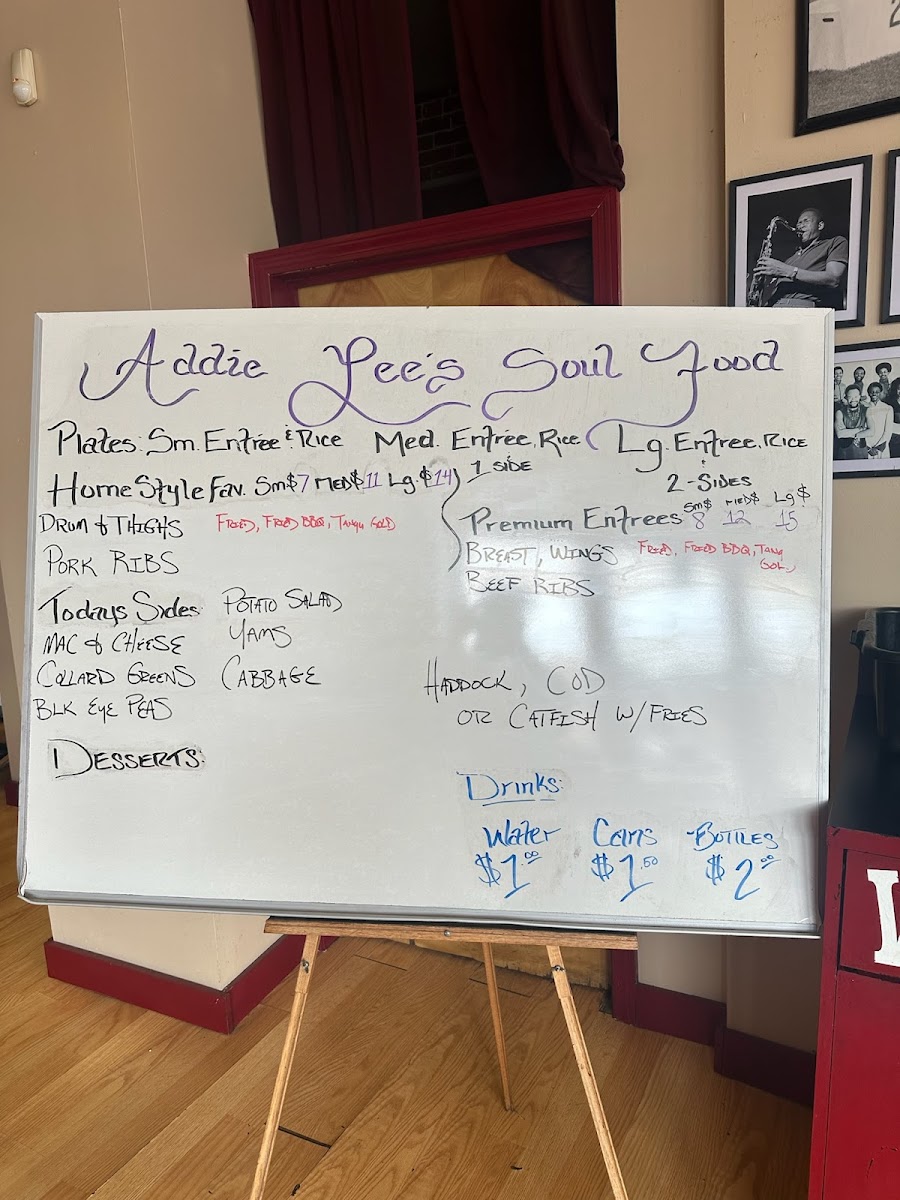 Addie Lee's Soul Food
Plates: Sm. Entree & Rice Med. Entree, Rice Lg. Entree, Rice
1 SIDE
+
2-SIDES
HomeStyle Fav. Sm$7 MED$11 Lg.$14
DRUM & THIGHS FRIED, FRIED BBQ, TANGY GOLD
PORK RIBS
Premium Entrees Sm$ 8 MED$ 12 Lg $ 15
BREAST, WINGS FRIED, FRIED BBQ, TANG
GOL
BEEF RIBS
Todays Sides: POTATO SALAD
MAC & CHEESE YAMS
COLLARD GREENS CABBAGE
BLK EYE PEAS
HADDOCK, COD
OR CATFISH W/FRIES
DESSERTS:
Drinks:
Water Cans BOTTLES
$1.00 $1.50 $2.00